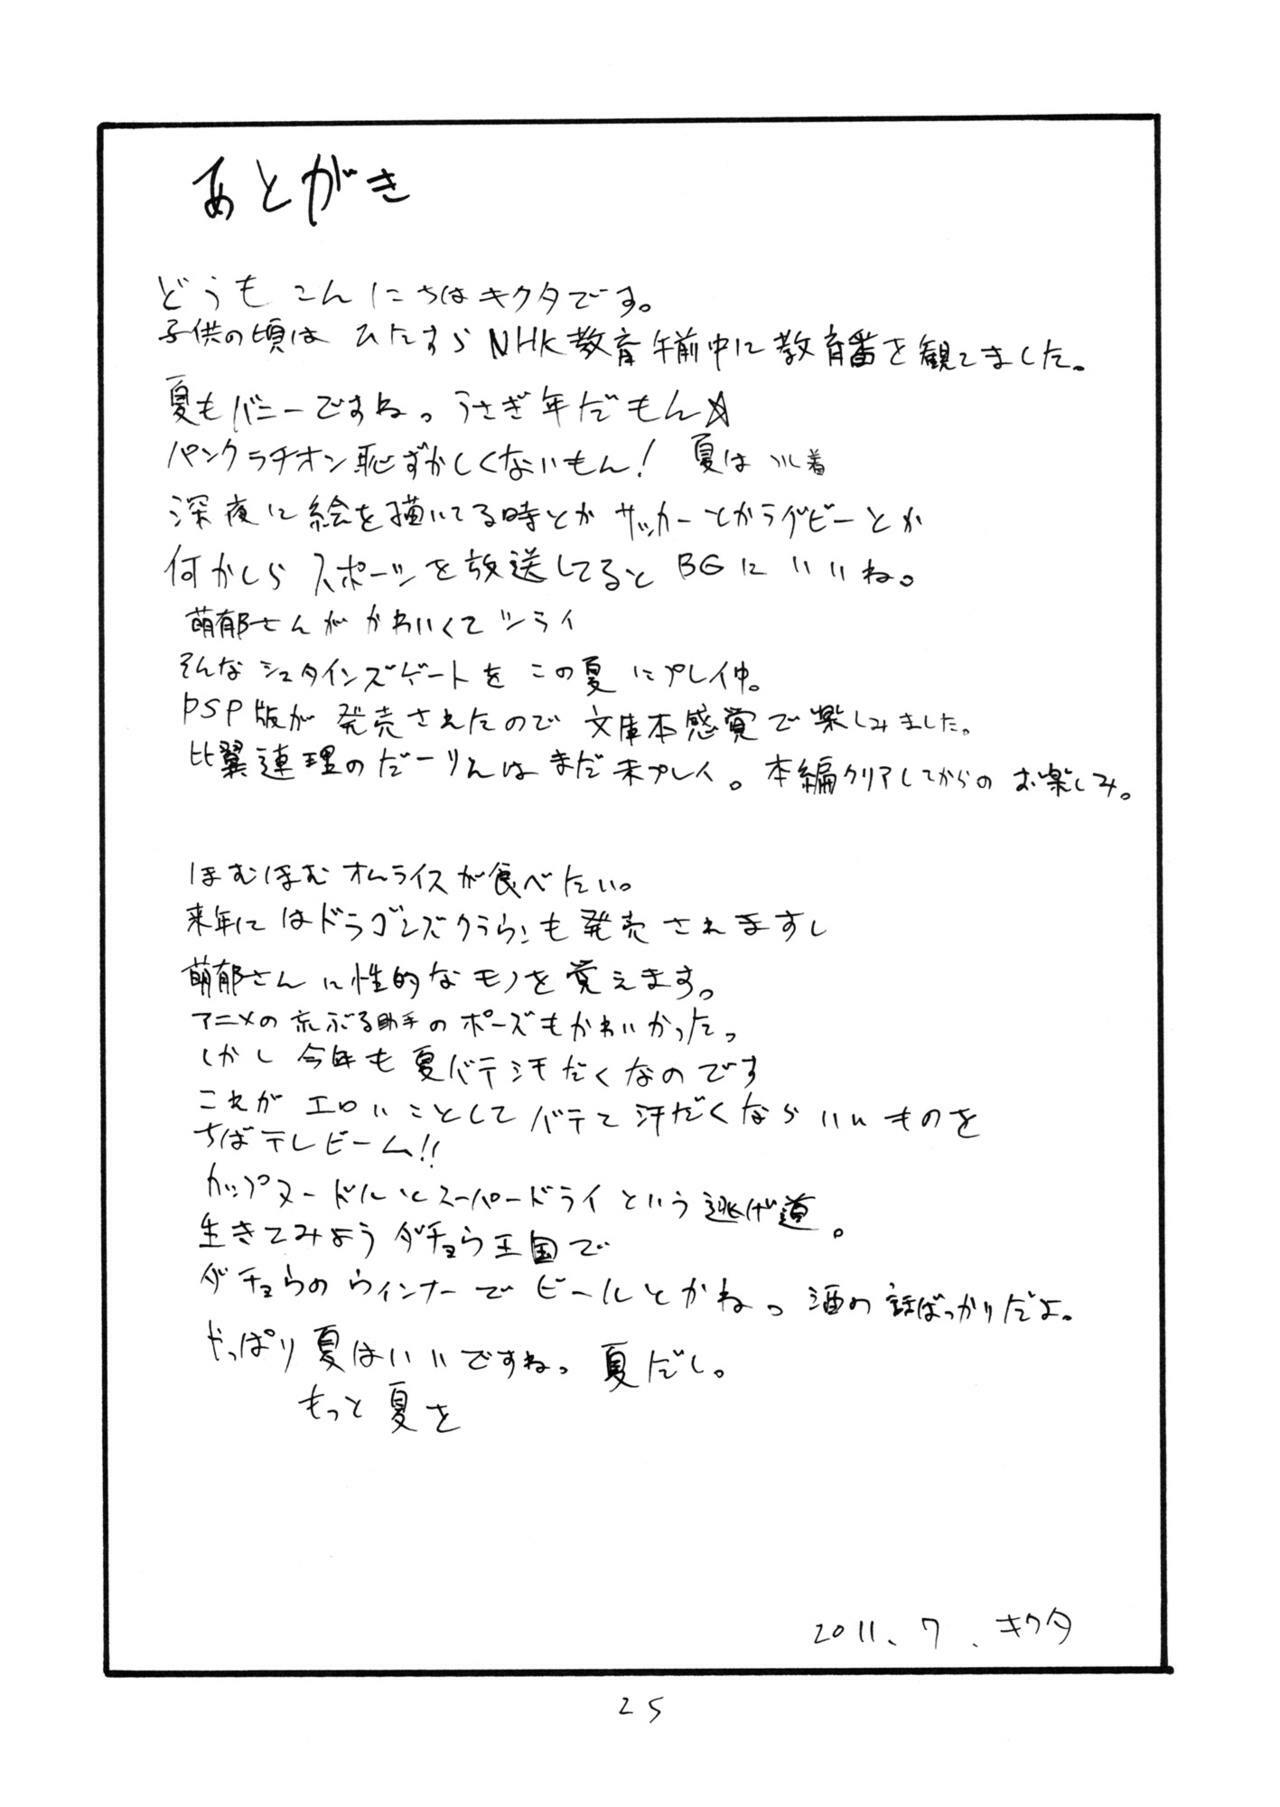 あとがき
どうもこんにちはキクタです。
子供の頃は ひたすら NHK教育 午前中に教育番を観てました。
夏もバニーですね。うさぎ年だもん☆
パンクラチオン恥ずかしくないもん! 夏は 着
深夜に絵を描いてる時とか サッカーとかラグビーとか
何かしら スポーツを放送してると BGに いいね。
萌郁さんが かわいくて ツライ
そんな シュタインズゲートを この夏にプレイ中。
PSP版が 発売されたので 文庫本感覚で楽しみました。
比翼連理のだーりんは まだ未プレイ。本編クリアしてからの お楽しみ。
ほむほむオムライスが食べたい。
来年にはドラゴンズクラウンも発売されますし
萌郁さんに性的なモノを覚えます。
アニメの荒ぶる助手のポーズもかわいかった。
しかし今年も夏バテ汗だくなのです
これが エロいことして バテて汗だくなら いいものを
ちばテレビーム!!
カップヌードルとスーパードライという逃げ道。
生きてみようダチョウ王国で
ダチョウのウィンナーで ビールとかね。酒の話ばっかりだよ。
やっぱり夏はいいですね。夏だし。
もっと夏を
2011.7. キクタ
25